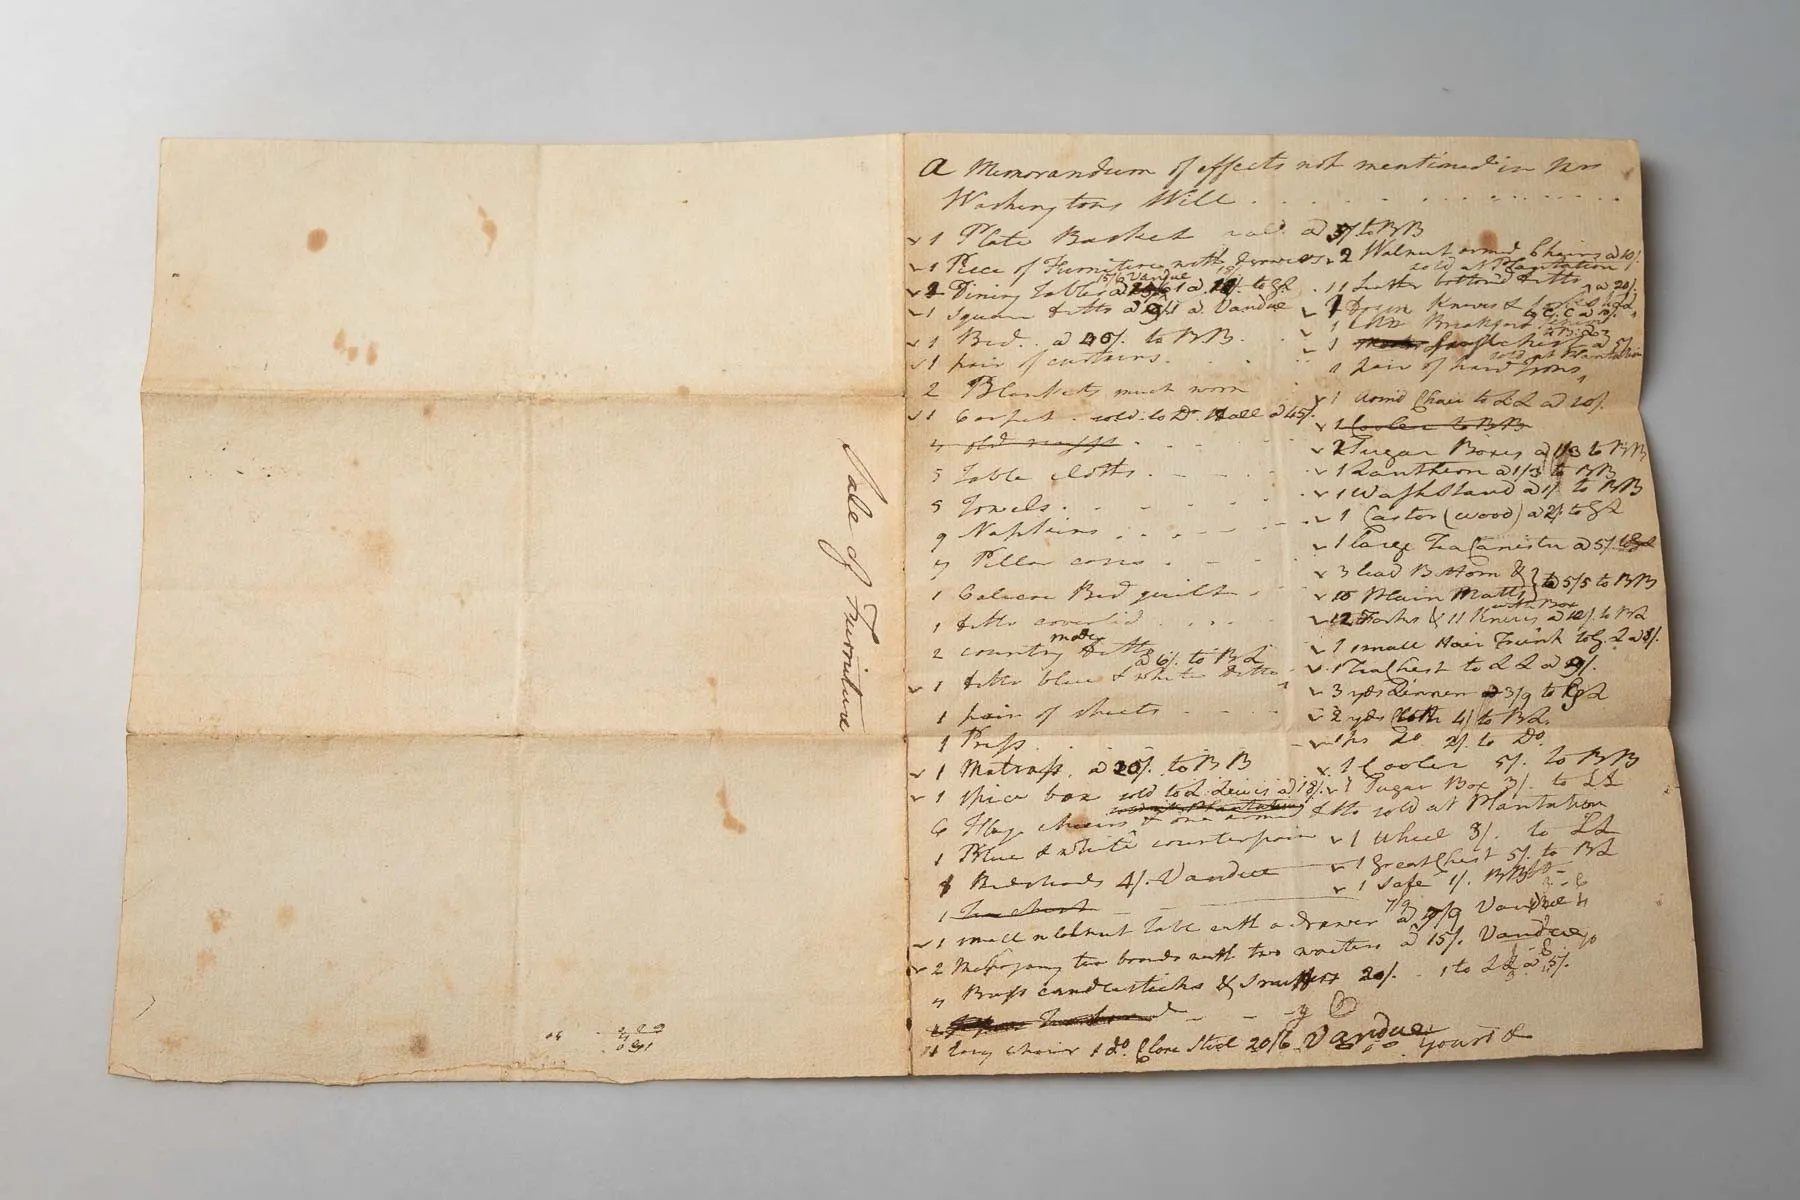 A Memorandum of effects not mentioned in Mrs
Washingtons Will
1 Plate Basket a 5/. to BB
1 Piece of Furniture with drawers
Vandue
2 Dining Tables a to GL
1 square ditto a Vandue
1 Bed a 40/. to BB
1 pair of curtains
2 Blankets much worn
1 Carpet sold to Dr Hall a 45/.
4 old
5 Table cloths
5 Towels
9 Napkins
7 Pillar cases
1 Calicoe Bed quilt
1 ditto coverlid
made
2 country ditto
a 6/. to BL
1 ditto blue & white ditto
1 pair of sheets
1 Press
1 Matrass a 20/. to BB
1 spice box sold to L Lewis a 18/.
6 Flag chairs & one armed ditto sold at Plantation
1 Blue & white counterpain
Bedsteads 4/. Vandue
1 Tea chest
1 small walnut Table with a drawer a 7/9 Vandue
2 Mahogany tea boards with two waiters a 15/. Vandue
7 Brass candlesticks & snuffers 20/. 1 to LL a 5/.
1 Easy chair 1 do. Close Stool 20/6 Vandue
2 Walnut armed Chairs a 10/.
sold at Plantation
11 Leather bottomd ditto a 20/.
Dozen Knives &
1 Breakfast
1 chest a 5/.
sold at Plantation
1 pair of hand irons
1 armd Chair to LL a 10/.
1 Cooler to BB
2 Sugar Boxes a 1/3 to BB
1 Lanthern a 1/3 to BB
1 Wash Stand a 1/. to BB
1 Castor (wood) a 2/. to GL
1 large Tea Canister a 5/.
3 lead Bottom &
a 5/5 to BB
15 Plain Matts
with Box
12 Forks & 11 Knives a 12/. to BL
1 small Hair Trunk to G L a 8/.
1 Tea Chest to LL a 9/.
3 yds Linnen a 3/9 to GL
2 yds Cloth 4/ to BL
1 ps Do 2/. to Do
1 Cooler 5/. to BB
1 Sugar Box 3/. to LL
1 Wheel 3/. to LL
1 Great Chest 5/. to BL
1 Safe 1/. BB
Sale of Furniture